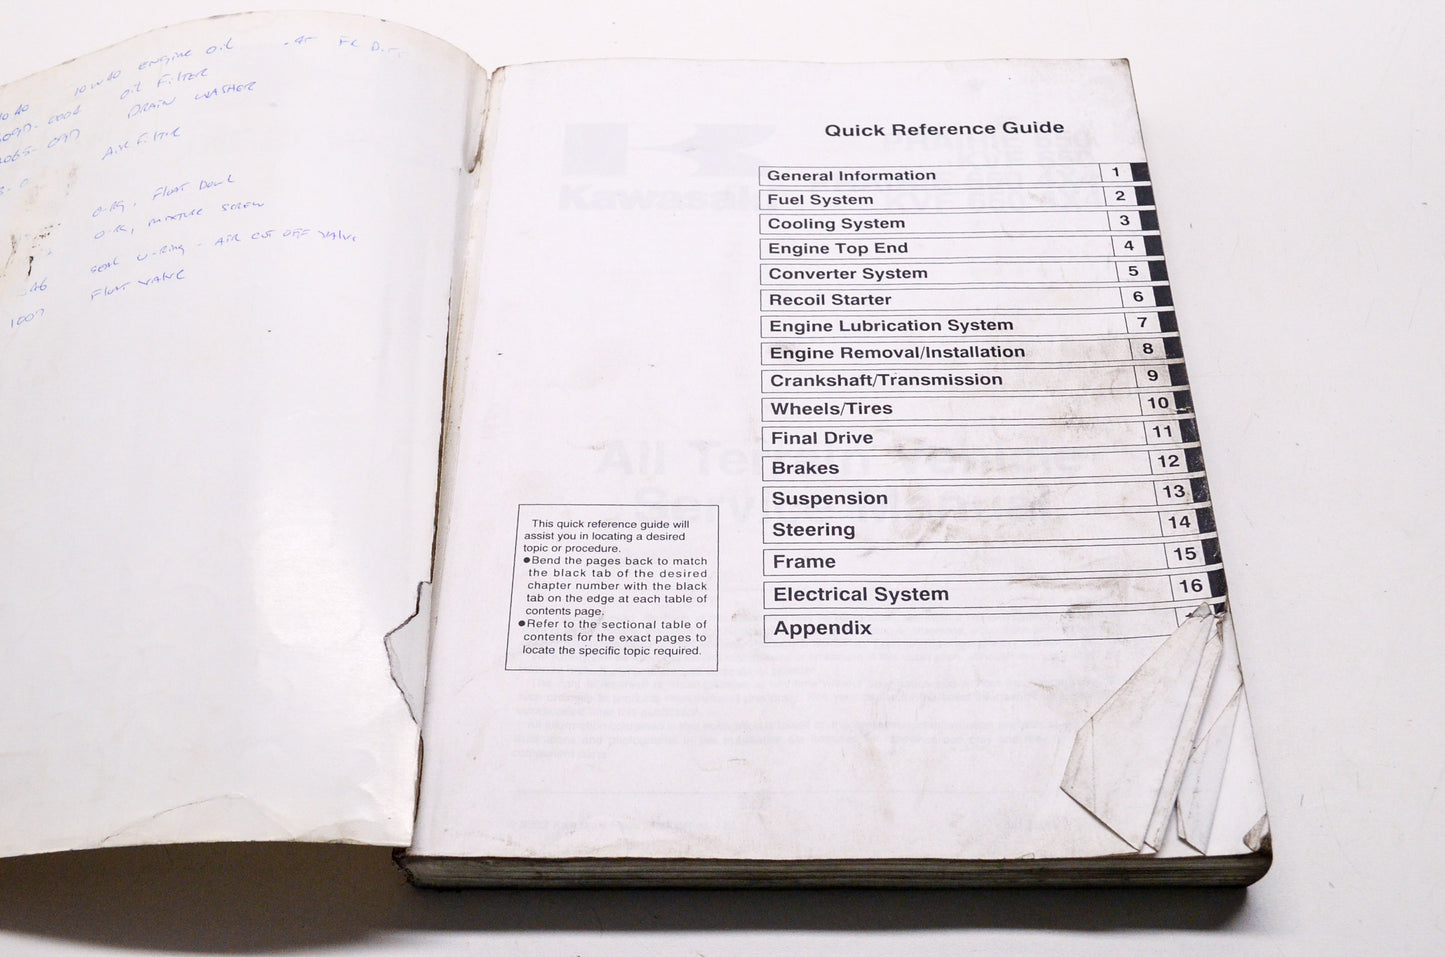 10w40 engine oil
oil Filter
DRAIN WASHER
Air Filter
Float Bowl
mixture screw
Seal U-Ring - Air cut off valve
Float valve
1007
Quick Reference Guide
General Information 1
Fuel System 2
Cooling System 3
Engine Top End 4
Converter System 5
Recoil Starter 6
Engine Lubrication System 7
Engine Removal/Installation 8
Crankshaft/Transmission 9
Wheels/Tires 10
Final Drive 11
Brakes 12
Suspension 13
Steering 14
Frame 15
Electrical System 16
Appendix
This quick reference guide will
assist you in locating a desired
topic or procedure.
●Bend the pages back to match
the black tab of the desired
chapter number with the black
tab on the edge at each table of
contents page.
●Refer to the sectional table of
contents for the exact pages to
locate the specific topic required.
Kawasaki
All Terrain Vehicle
Service Manual